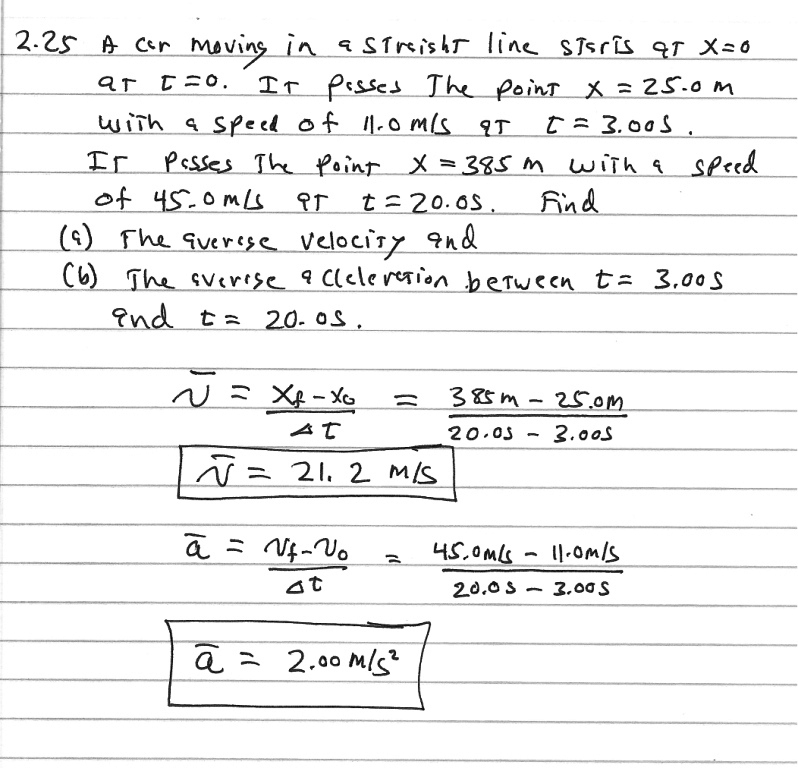 2.25 A car moving in a straight line starts at x=0
at t=0. It passes the point x = 25.0 m
with a speed of 11.0 m/s at t = 3.00s.
It passes the point x = 385 m with a speed
of 45.0 m/s at t = 20.0s. Find
(a) The average velocity and
(b) The average acceleration between t = 3.00s
and t = 20.0s.
v̄ = (x_f - x_0)/Δt = (385m - 25.0m)/(20.0s - 3.00s)
v̄ = 21.2 m/s
ā = (v_f - v_0)/Δt = (45.0m/s - 11.0m/s)/(20.0s - 3.00s)
ā = 2.00 m/s²